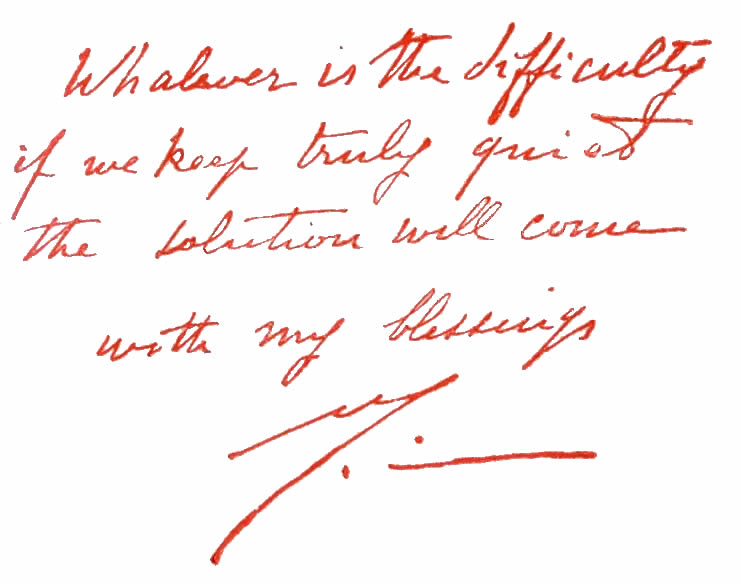 Whatever is the difficulty
if we keep truly quiet
the solution will come
with my blessings